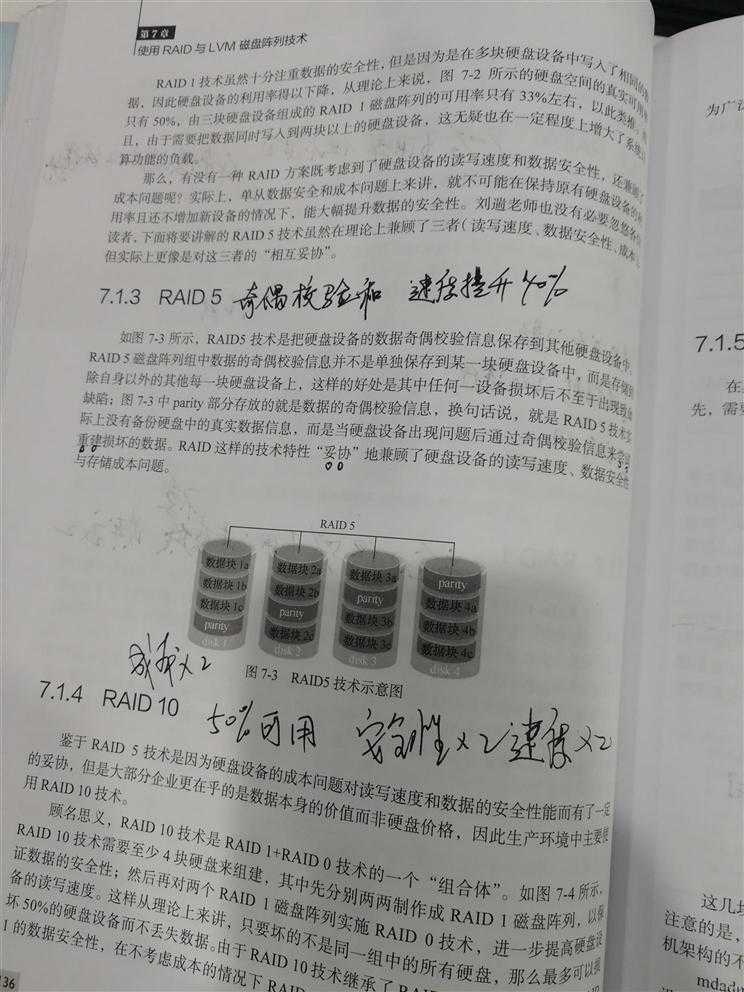 第7章
使用RAID与LVM磁盘阵列技术
RAID 1技术虽然十分注重数据的安全性，但是因为是在多块硬盘设备中写入了相同的数
据，因此硬盘设备的利用率得以下降，从理论上来说，图 7-2 所示的硬盘空间的真实可用率
只有50%，由三块硬盘设备组成的 RAID 1 磁盘阵列的可用率只有 33%左右，以此类推。而
且，由于需要把数据同时写入到两块以上的硬盘设备，这无疑也在一定程度上增大了系统计
算功能的负载。
那么，有没有一种 RAID 方案既考虑到了硬盘设备的读写速度和数据安全性，还兼顾了
成本问题呢？实际上，单从数据安全和成本问题上来讲，就不可能在保持原有硬盘设备的利
用率且还不增加新设备的情况下，能大幅提升数据的安全性。刘遄老师也没有必要忽悠各位
读者，下面将要讲解的RAID 5技术虽然在理论上兼顾了三者（读写速度、数据安全性、成本），
但实际上更像是对这三者的“相互妥协”。
7.1.3 RAID 5 奇偶校验和 速度提升40%
如图 7-3 所示，RAID5 技术是把硬盘设备的数据奇偶校验信息保存到其他硬盘设备中。
RAID 5 磁盘阵列组中数据的奇偶校验信息并不是单独保存到某一块硬盘设备中，而是存储到
除自身以外的其他每一块硬盘设备上，这样的好处是其中任何一设备损坏后不至于出现致命
缺陷；图 7-3 中 parity 部分存放的就是数据的奇偶校验信息，换句话说，就是 RAID 5 技术实
际上没有备份硬盘中的真实数据信息，而是当硬盘设备出现问题后通过奇偶校验信息来尝试
重建损坏的数据。RAID 这样的技术特性“妥协”地兼顾了硬盘设备的读写速度、数据安全性
与存储成本问题。
RAID 5
数据块 1a 数据块 2a 数据块 3a parity
数据块 1b 数据块 2b parity 数据块 4a
数据块 1c parity 数据块 3b 数据块 4b
parity 数据块 2c 数据块 3c 数据块 4c
disk 1 disk 2 disk 3 disk 4
图 7-3 RAID5 技术示意图
成本×2
7.1.4 RAID 10 50%可用 安全性×2 速度×2
鉴于 RAID 5 技术是因为硬盘设备的成本问题对读写速度和数据的安全性能而有了一定
的妥协，但是大部分企业更在乎的是数据本身的价值而非硬盘价格，因此生产环境中主要使
用 RAID 10 技术。
顾名思义，RAID 10 技术是 RAID 1+RAID 0 技术的一个“组合体”。如图 7-4 所示，
RAID 10 技术需要至少 4 块硬盘来组建，其中先分别两两制作成 RAID 1 磁盘阵列，以保
证数据的安全性；然后再对两个 RAID 1 磁盘阵列实施 RAID 0 技术，进一步提高硬盘设
备的读写速度。这样从理论上来讲，只要坏的不是同一组中的所有硬盘，那么最多可以损
坏 50%的硬盘设备而不丢失数据。由于 RAID 10 技术继承了
1 的数据安全性，在不考虑成本的情况下
36
为广
7.1.5
在
先，需要
这几块
注意的是，
机架构的不
mdadm